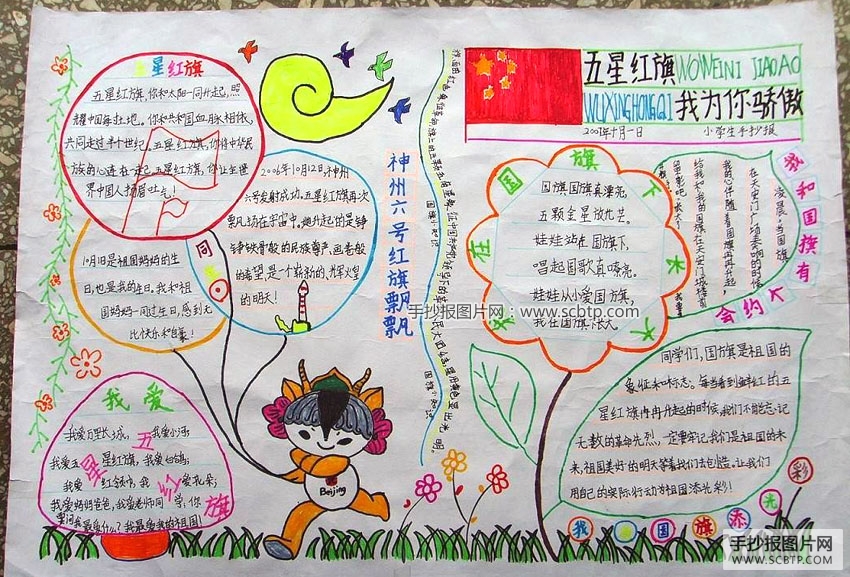 五星红旗
WOWEINI JIAOAO
WUXINGHONGQI
我为你骄傲
2007年十月一日
小学生手抄报
五星红旗
五星红旗,你和太阳一同升起,照
耀中国每吐地。你和共和国血脉相依,
共同走过半个世纪。五星红旗,你将中华民
族的心连在一起,五星红旗,你让全世
界中国人扬眉吐气!
2006年10月12日,神州
六号发射成功,五星红旗再次
飘扬在宇宙中。她升起的是铮
铮铁骨般的民族尊严,画卷般
的希望,是个崭新的、辉火皇
的明天!
神州六号红旗飘飘
同
10月1日是祖国妈妈的生
日,也是我的生日。我和祖
国妈妈一同过生日,感到无
比快乐和自豪!
我爱
我爱万里长城,我爱小河;
我爱五星红旗,我爱白鸽;
我爱红领巾,我爱乳朵;
我爱妈妈爸爸,我爱老师同学;你
要问我最爱什么?我最爱我的祖国!
五星红旗
Beijing
国旗小知识
在国旗下长大
国旗国旗真漂亮,
五颗金星放光芒。
娃娃站在国旗下,
唱起国歌真嘹亮。
娃娃从小爱国旗,
我在国旗下长大
我和国旗有个约会
凌晨,当国旗
在天安门广场奏响的时候
我的心伴随着国旗冉冉升起,
同学们,国旗是祖国的
象征和标志。每当看到鲜红的五
星红旗冉冉升起的时候,我们不能忘记
无数的革命先烈,一定要牢记我们是祖国的未
来,祖国美好的明天等着我们去创造。让我们
用自己的实际行动为祖国添光彩!
我为国旗添光彩
手抄报图片网:www.scbtp.com
手抄报图片网
WWW.SCBTP.COM